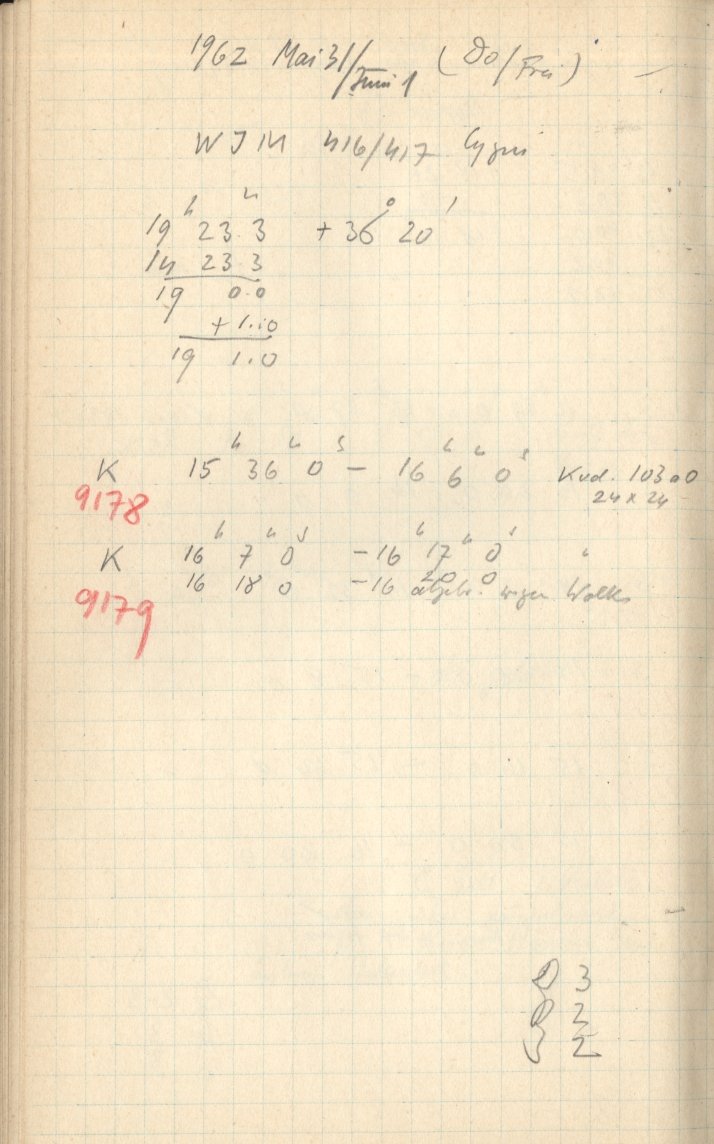 1962 Mai 31/Juni 1 (Do/Frei)
416/417 Cygni
19ʰ 23.3ᵐ + 36° 20'
14 23.3
19 0.0
+ 1.0
19 1.0
K 15ʰ 36ᵐ 0ˢ – 16ʰ 6ᵐ 0ˢ Kod. 103a0
9178 24 x 24
K 16ʰ 7ᵐ 0ˢ – 16ʰ 17ᵐ 0ˢ "
16 18 0 – 16 20 0
9179 abgebr. wegen Wolken
3
2
2